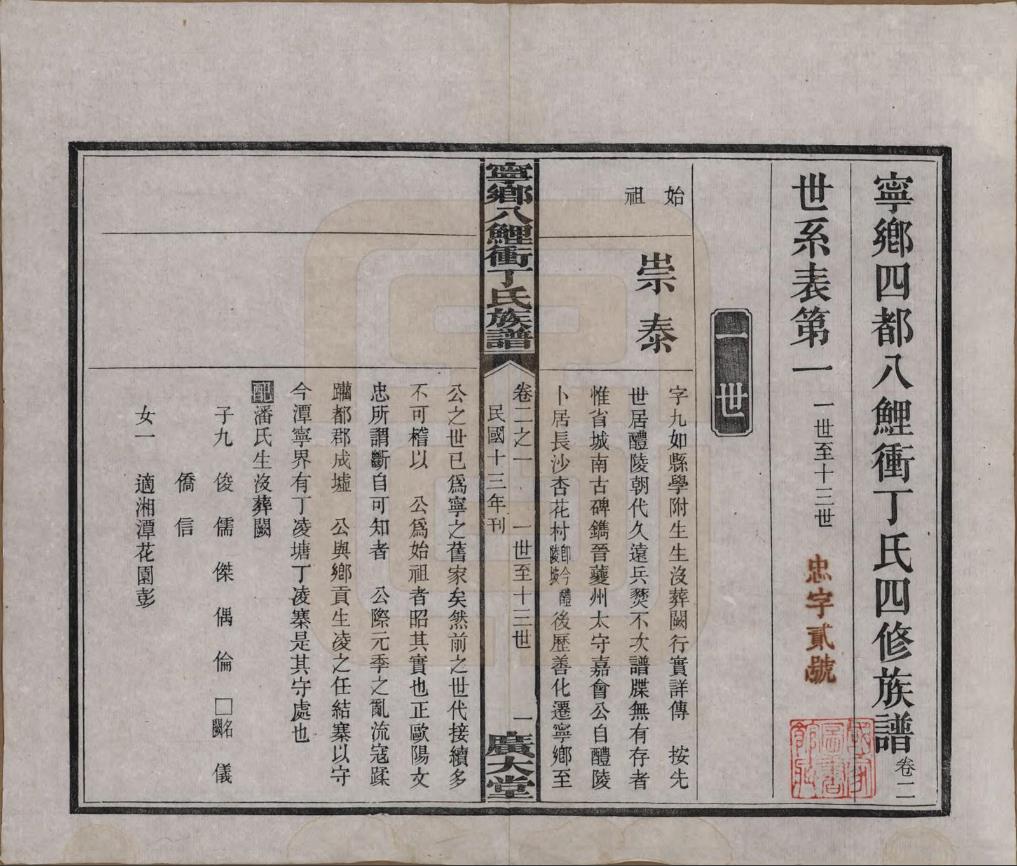 寧鄉四都八鯉衝丁氏四修族譜卷二
世系表第一 一世至十三世
忠字貳號
國家圖書館藏
一世
始祖
崇泰
字九如縣學附生生沒葬闕行實詳傳 按先
世居醴陵朝代久遠兵燹不次譜牒無有存者
惟省城南古碑鐫晉蘷州太守嘉會公自醴陵
卜居長沙杏花村即今醴陵坡後歷善化遷寧鄉至
寧鄉八鯉衝丁氏族譜
卷二之一 一世至十三世 一
民國十三年刊
廣大堂
公之世已爲寧之舊家矣然前之世代接續多
不可稽以 公爲始祖者昭其實也正歐陽文
忠所謂斷自可知者 公際元季之亂流寇蹂
躪都郡成墟 公與鄉貢生凌之任結寨以守
今潭寧界有丁凌塘丁凌寨是其守處也
配潘氏生沒葬闕
子九 俊 儒 傑 偶 倫 □名闕 儀
僑 信
女一 適湘潭花園彭